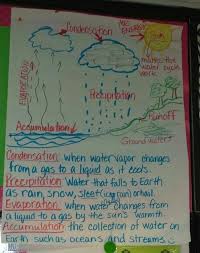 Condensation
has
energy
Sun
makes the
water cycle
work
EVAPORATION
Precipitation
Runoff
Accumulation
Groundwater
Condensation: when water vapor changes
from a gas to a liquid as it cools.
Precipitation: Water that falls to Earth
as rain, snow, sleet (ice rain) or hail.
Evaporation: when water changes from
a liquid to a gas by the sun's warmth.
Accumulation: the collection of water on
Earth such as oceans and streams.